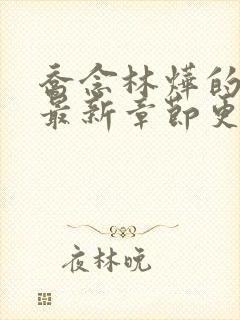 乔念林烨的
最新章节更
夜林晚